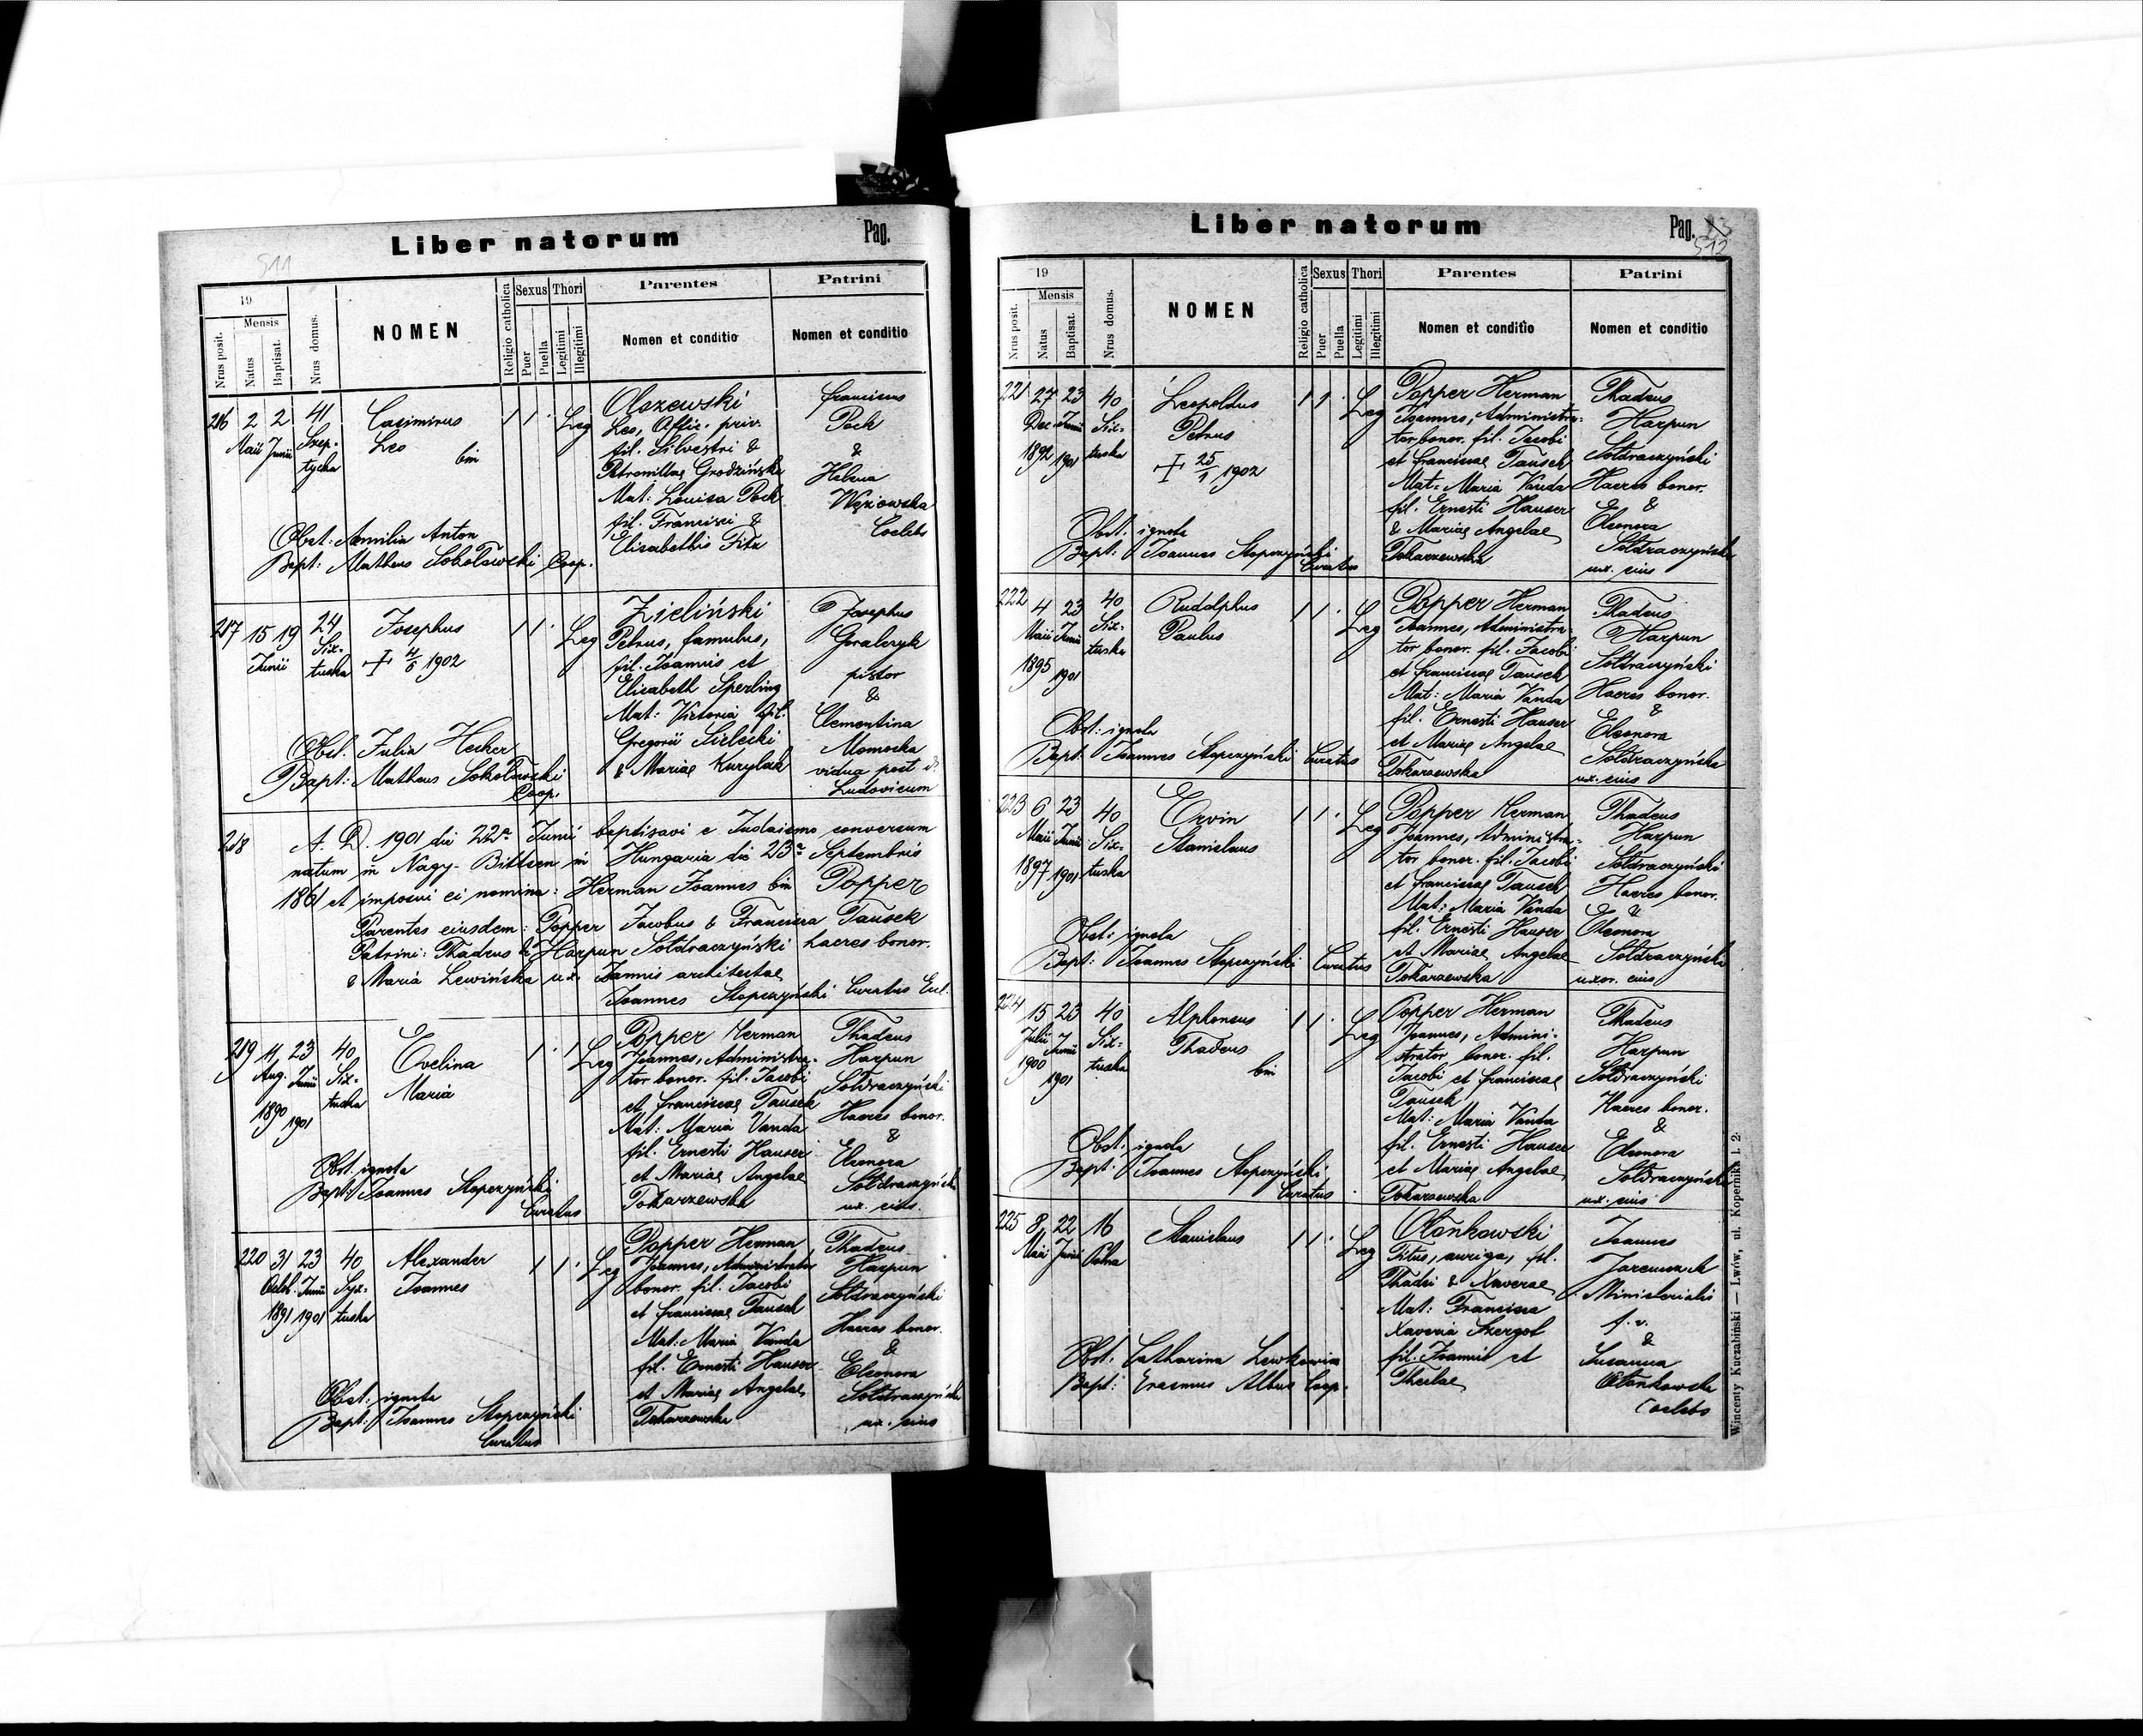 Liber natorum
Pag.
511
19
Mensis
Nrus posit.
Natus
Baptisat.
Nrus domus.
NOMEN
Religio catholica
Sexus
Puer
Puella
Thori
Legitimi
Illegitimi
Parentes
Nomen et conditio
Patrini
Nomen et conditio
216
2 Maii
2 Junii
41
Szep-
tycka
Casimirus
Leo
bin
1 1 · Leg
Olszewski
Leo, Offic. priv.
fil. Silvestri &
Petronillae Grodzińska
Mat: Louisa Pock
fil. Francisci &
Elisabethis Fitz
Franciscus
Pock
&
Helena
Coelebs
Obst: Amilia Anton
Bapt: Matheus Sokołowski Coop.
217
15 19
Junii
24
Six-
tuska
Josephus
+ 4/6 1902
1 1 · Leg
Zieliński
Petrus, famulus,
fil. Joannis et
Elisabeth Sperling
Mat: Victoria fil.
Gregorii Sielecki
& Mariae Kurylak
Josephus
Goralczyk
pistor
&
Clementina
Momocka
vidua post
Ludovicum
Obst. Julia Hecker
Bapt: Matheus Sokołowski
Coop.
218
A. D. 1901 die 22a Junii baptisavi e Judaismo conversum
natum in Nagy-Bittsen in Hungaria die 23a Septembris
1861 et imposui ei nomina: Herman Joannes bin Popper
Parentes eiusdem: Popper Jacobus & Francisca Tausek
Patrini: Thadeus de Harpun Sołdraczyński haeres bonor.
& Maria Lewińska ux. Joannis architectae
Joannes Stopczyński Curatus Eccl.
219
11 Aug. 1890
23 Junii 1901
40
Six-
tuska
Evelina
Maria
1 · 1 Leg
Popper Herman
Joannes, Administra-
tor bonor. fil. Jacobi
et Franciscae Tausek
Mat: Maria Vanda
fil. Ernesti Hauser
et Mariae Angelae
Tokarzewska
Thadeus
Harpun
Sołdraczyński
Haeres bonor.
&
Eleonora
Sołdraczyńska
ux. eius.
Obst. ignota
Bapt: Joannes Stopczyński
Curatus
220
31 Octob. 1891
23 Junii 1901
40
Syx-
tuska
Alexander
Joannes
1 1 · Leg
Popper Herman
Joannes, Administrator
bonor. fil. Jacobi
et Franciscae Tausek
Mat: Maria Vanda
fil. Ernesti Hauser
et Mariae Angelae
Tokarzewska
Thadeus
Harpun
Sołdraczyński
Haeres bonor.
&
Eleonora
Sołdraczyńska
ux. eius
Obst: ignota
Bapt: Joannes Stopczyński
Curatus
Liber natorum
Pag.
512
19
Mensis
Nrus posit.
Natus
Baptisat.
Nrus domus.
NOMEN
Religio catholica
Sexus
Puer
Puella
Thori
Legitimi
Illegitimi
Parentes
Nomen et conditio
Patrini
Nomen et conditio
221
27 Dec. 1892
23 Junii 1901
40
Six-
tuska
Leopoldus
Petrus
+ 25/1 1902
1 1 · Leg
Popper Herman
Joannes, Administra-
tor bonor. fil. Jacobi
et Franciscae Tausek
Mat: Maria Vanda
fil. Ernesti Hauser
& Mariae Angelae
Tokarzewska
Thadeus
Harpun
Sołdraczyński
Haeres bonor.
&
Eleonora
Sołdraczyńska
ux. eius
Obst: ignota
Bapt: Joannes Stopczyński
Curatus
222
4 Maii 1895
23 Junii 1901
40
Six-
tuska
Rudolphus
Paulus
1 1 · Leg
Popper Herman
Joannes, Administra-
tor bonor. fil. Jacobi
et Franciscae Tausek
Mat: Maria Vanda
fil. Ernesti Hauser
et Mariae Angelae
Tokarzewska
Thadeus
Harpun
Sołdraczyński
Haeres bonor.
&
Eleonora
Sołdraczyńska
ux. eius
Obst: ignota
Bapt: Joannes Stopczyński Curatus
223
6 Maii 1897
23 Junii 1901
40
Six-
tuska
Ervin
Stanislaus
1 1 · Leg
Popper Herman
Joannes, Administra-
tor bonor. fil. Jacobi
et Franciscae Tausek
Mat: Maria Vanda
fil. Ernesti Hauser
et Mariae Angelae
Tokarzewska
Thadeus
Harpun
Sołdraczyński
Haeres bonor.
&
Eleonora
Sołdraczyńska
uxor. eius
Obst: ignota
Bapt: Joannes Stopczyński Curatus
224
15 Julii 1900
23 Junii 1901
40
Six-
tuska
Alphonsus
Thadeus
bin
1 1 · Leg
Popper Herman
Joannes, Admini-
strator bonor. fil.
Jacobi et Franciscae
Tausek
Mat: Maria Vanda
fil. Ernesti Hauser
et Mariae Angelae
Tokarzewska
Thadeus
Harpun
Sołdraczyński
Haeres bonor.
&
Eleonora
Sołdraczyńska
ux. eius
Obst: ignota
Bapt: Joannes Stopczyński
Curatus
225
8 Maii
22 Junii
16
Stanislaus
1 1 · Leg
Olankowski
Titus, auriga, fil.
Thadei & Xaverae
Mat: Francisca
Xaveria Szergot
fil. Joannis et
Theclae
Joannes
Ministerialis
&
Susanna
Olankowska
Coelebs
Obst: Catharina Lewkowicz
Bapt: Erasmus Albus Coop.
Wincenty Kuczabiński — Lwów, ul. Kopernika l. 2·